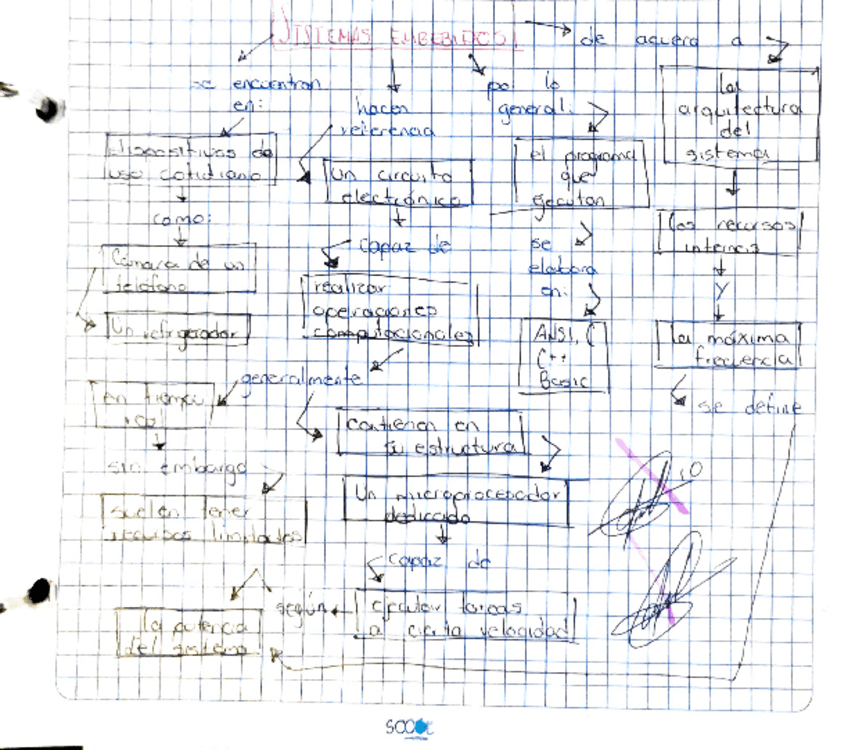 SISTEMAS EMBEBIDOS
se encuentran
en:
dispositivos de
uso cotidiano
como:
Cámara de un
teléfono
Un refrigerador
hacen
referencia
Un circuito
electrónico
capaz de
realizar
operaciones
computacionales
generalmente
en tiempo
real
sin embargo
suelen tener
recursos limitados
contienen en
su estructura
Un microprocesador
dedicado
capaz de
ejecutar tareas
a cierta velocidad
según
la potencia
del sistema
por lo
general:
el programa
que
ejecutan
se
elabora
en:
ANSI, C
C++
Basic
de acuero a
la
arquitectura
del
sistema
los recursos
internos
y
la máxima
frecuencia
se define